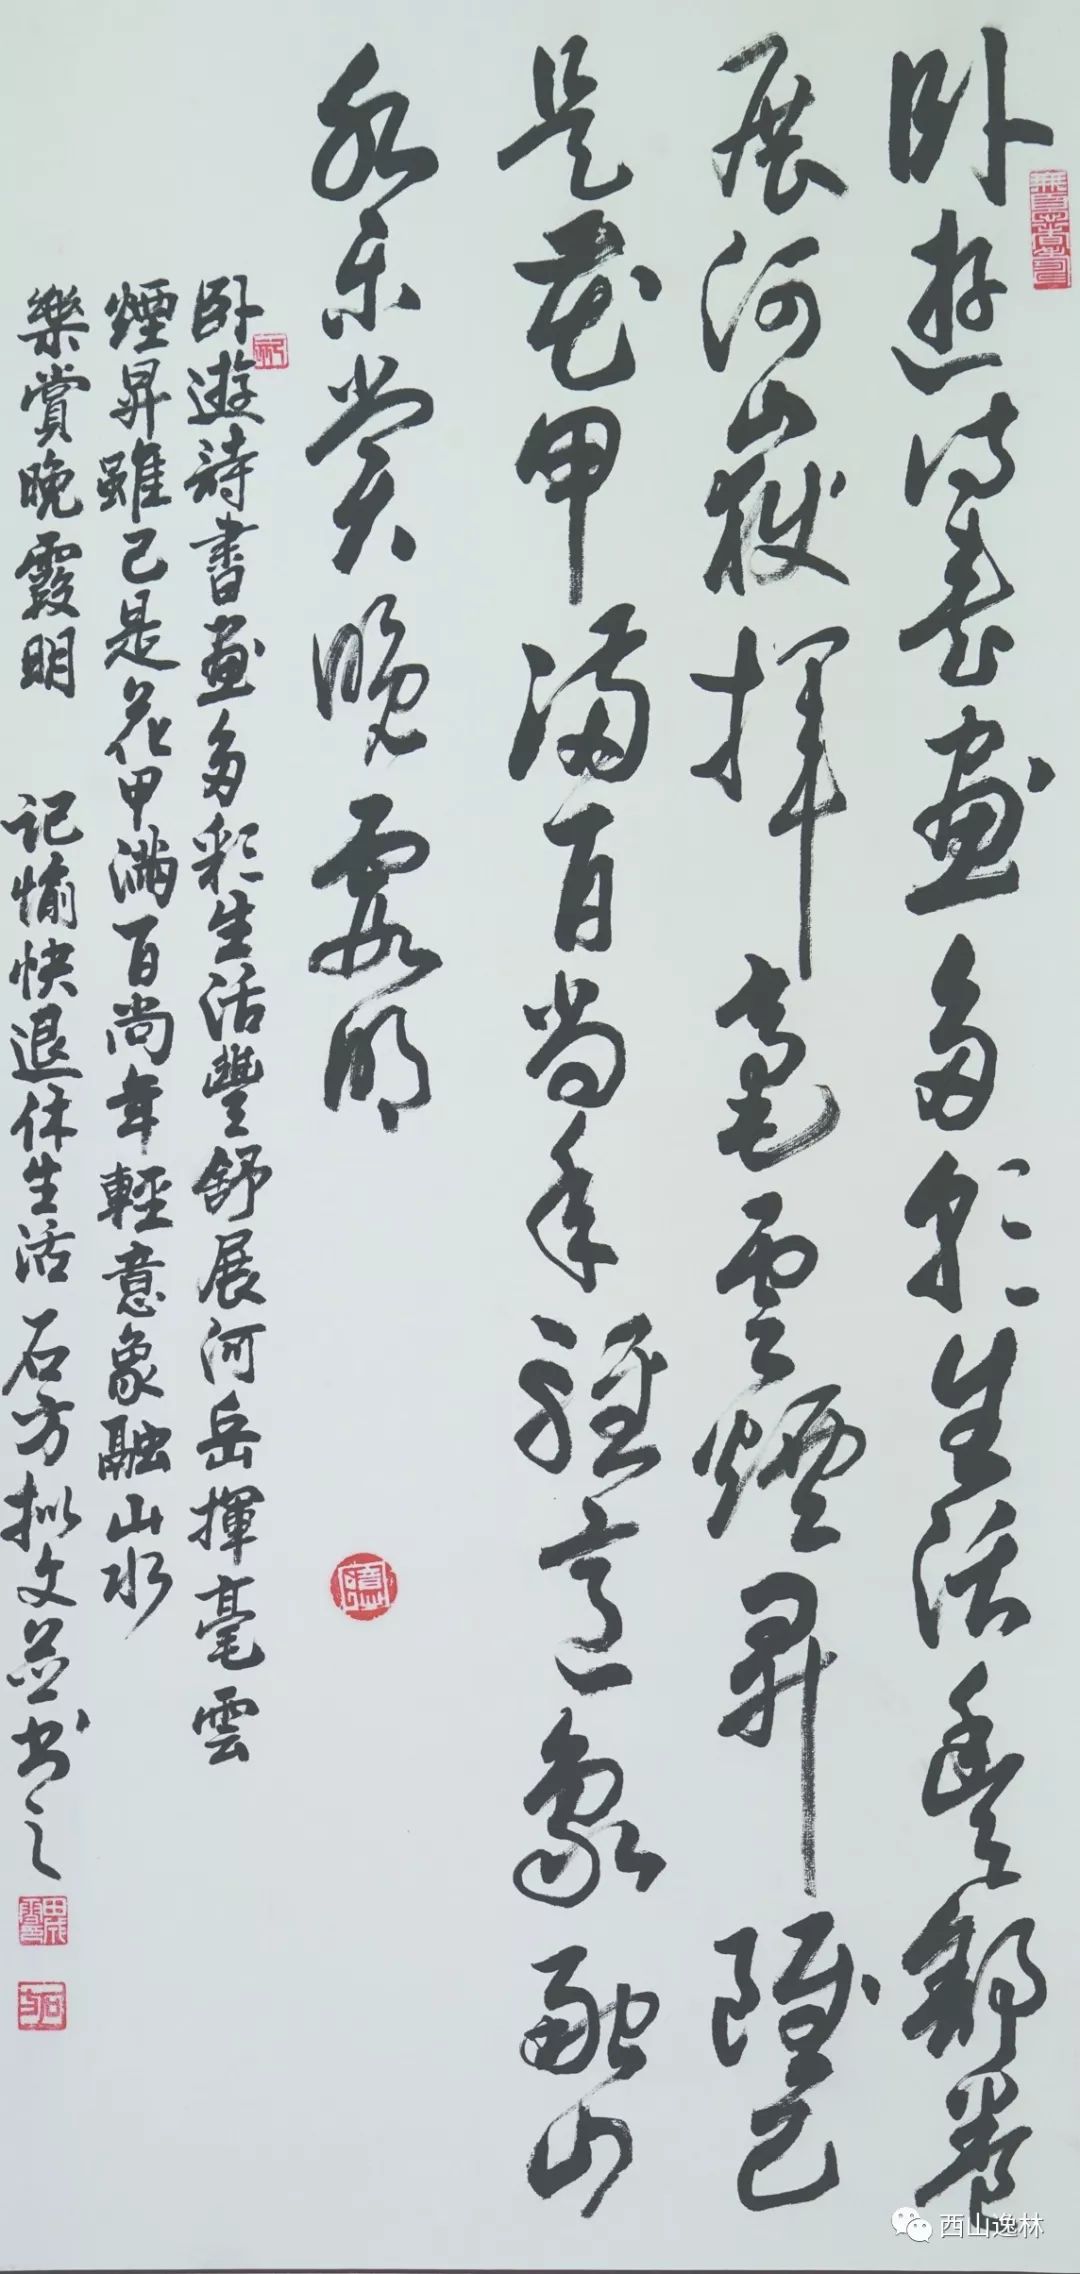 卧遊诗書畫多彩生活豐舒卷
展河嶽揮毫雲煙昇雖已
是花甲满百尚年輕意象融山
水乐赏晚霞明
卧遊詩書畫多彩生活豐舒展河岳揮毫雲
煙昇雖已是花甲满百尚年輕意象融山水
樂賞晚霞明 记愉快退休生活 石方拟文並书之
石方
西山逸林